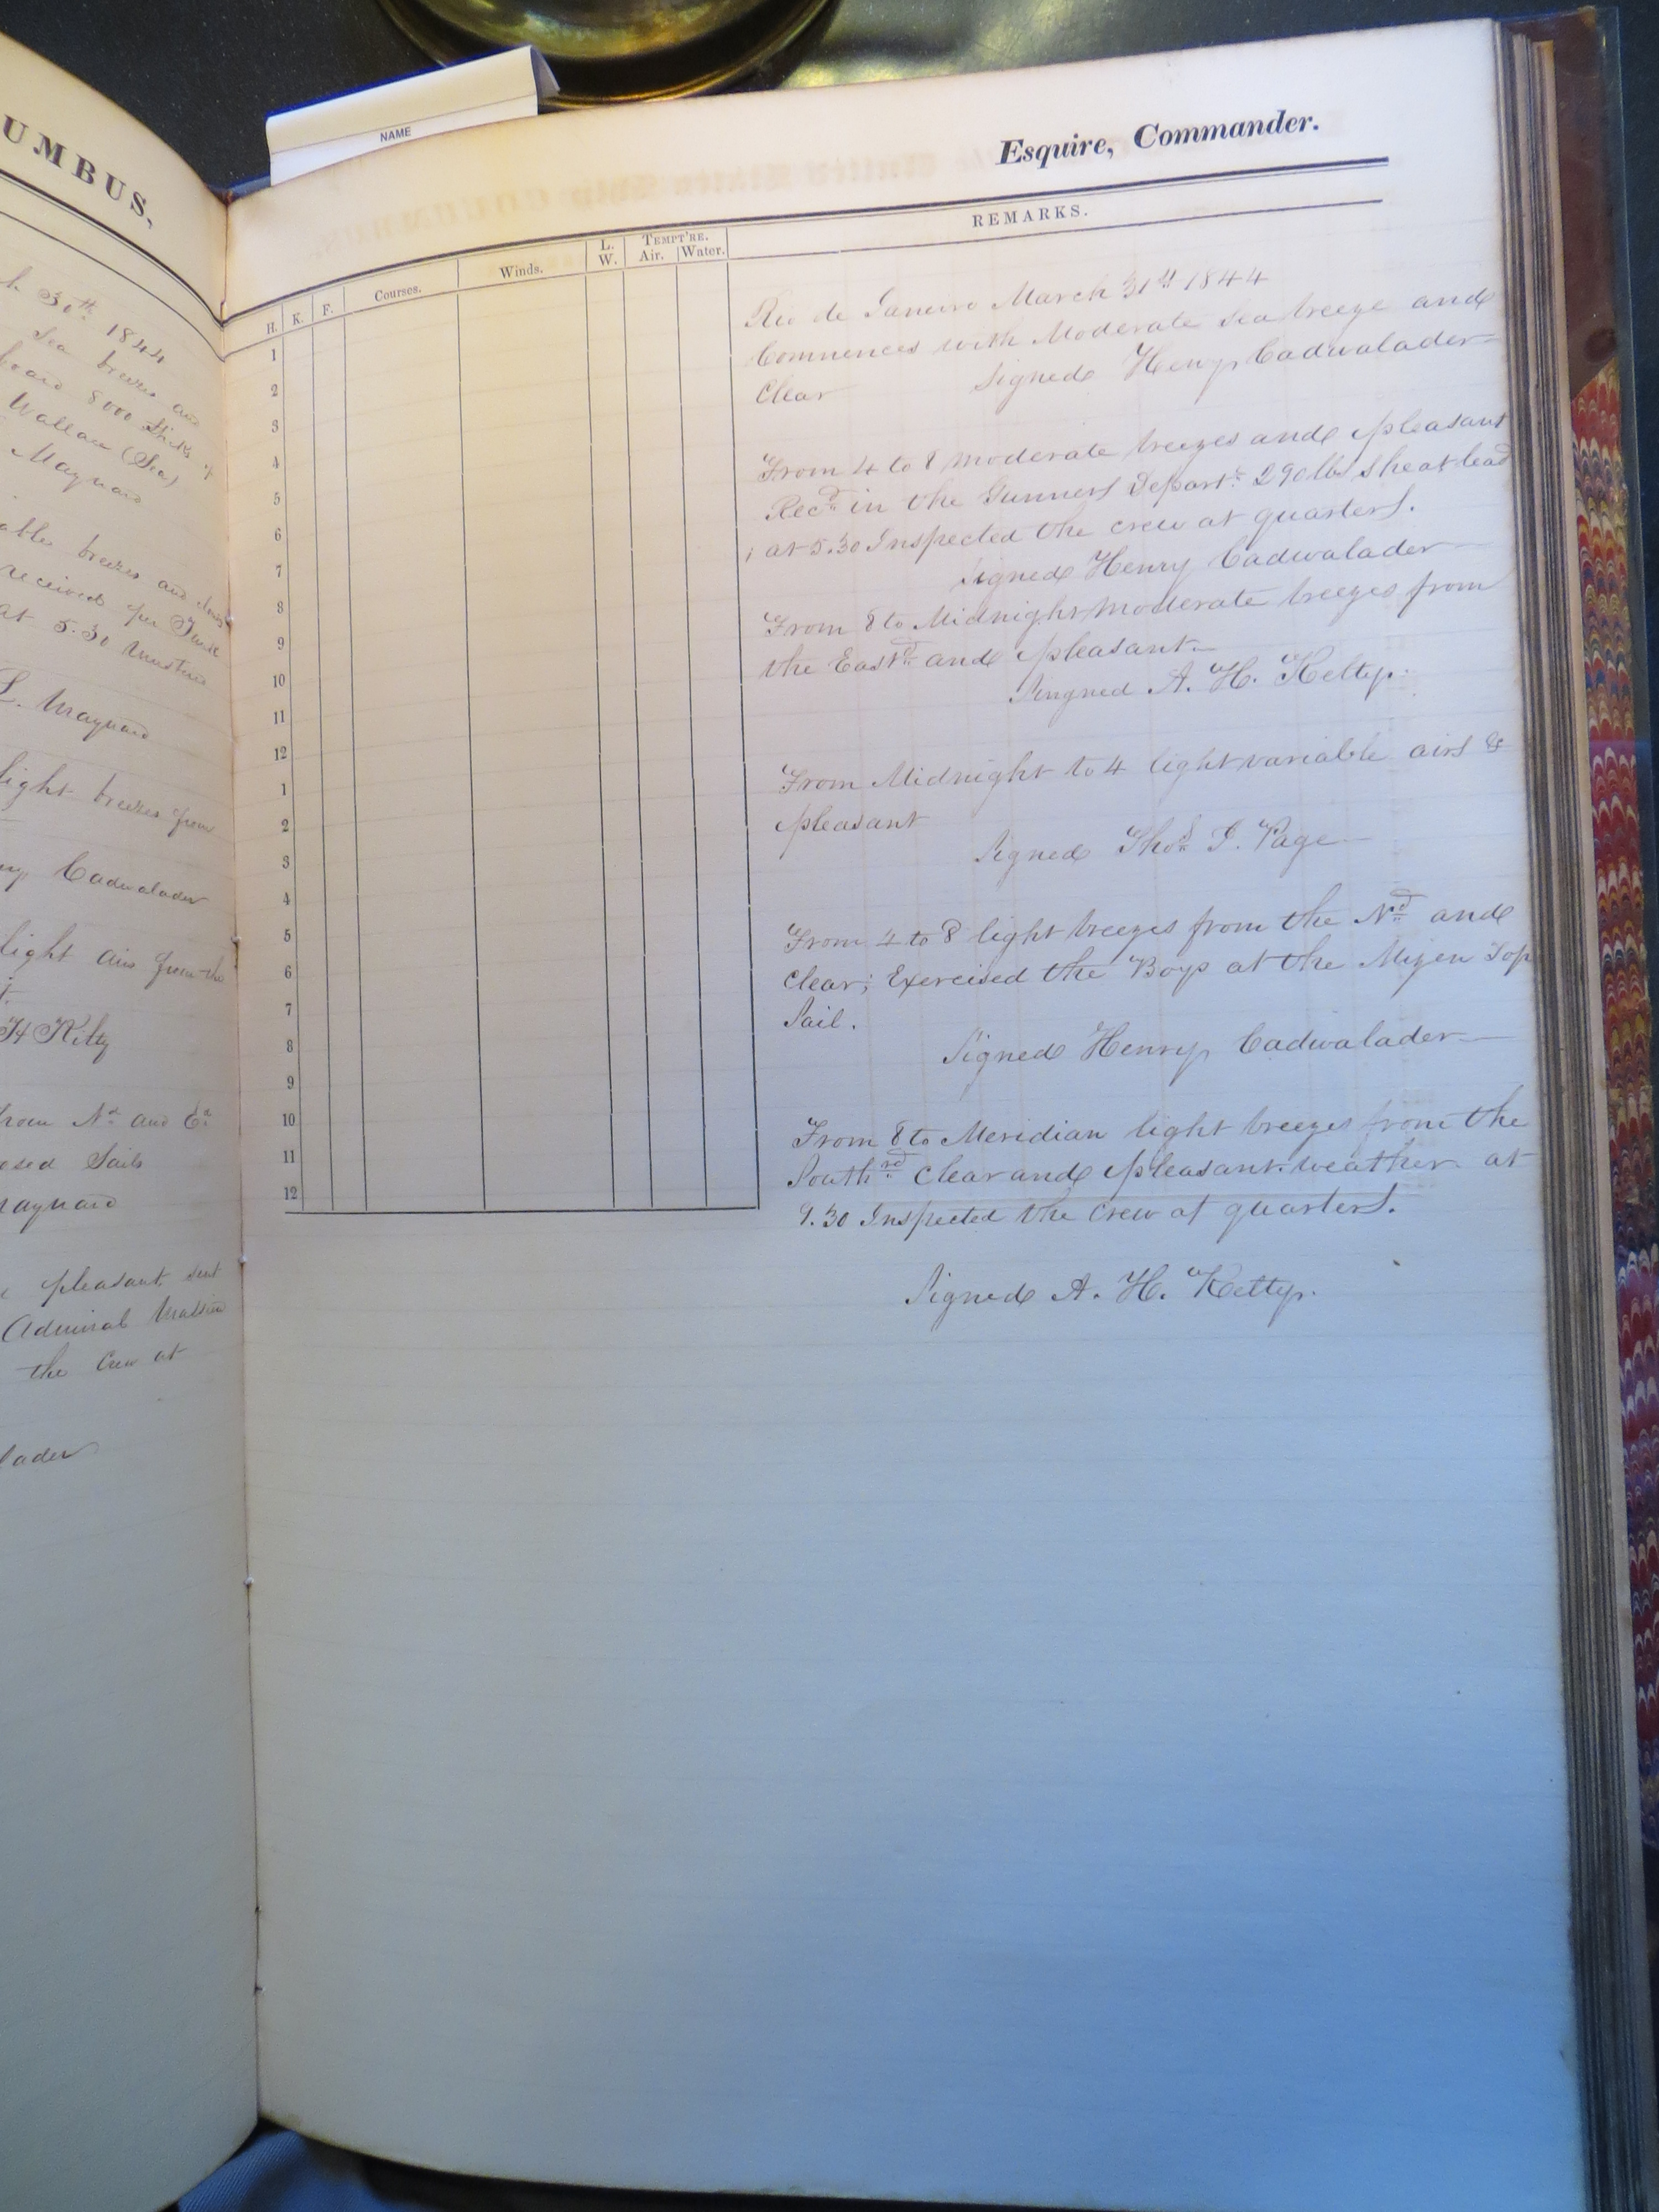 UMBUS,
30th 1844
Sea breezes and
board 8000 Sticks of
Wallace (Sea)
Maynard
able breezes and
received per
at 5.30
L. Maynard
light breezes from
Cadwalader
light airs from the
H Kilty
from Nd and Ed
Sails
pleasant sent
Admiral
the Crew at
lader
NAME
Esquire, Commander.
H. K. F. Courses. Winds. L. W. TEMPT'RE. Air. Water. REMARKS.
1
2
3
4
5
6
7
8
9
10
11
12
1
2
3
4
5
6
7
8
9
10
11
12
Rio de Janeiro March 31st 1844
Commences with Moderate Sea breeze and
Clear Signed Henry Cadwalader
From 4 to 8 moderate breezes and pleasant
Recd in the Gunners Depart: 290 lbs sheat lead
; at 5.30 Inspected the crew at quarters.
Signed Henry Cadwalader
From 8 to Midnight moderate breezes from
the Eastd and pleasant
Singned A. H. Keltty.
From Midnight to 4 light variable airs &
pleasant
Signed Thos J. Page
From 4 to 8 light breezes from the Nd and
Clear; Exercised the Boys at the Mizen Top
Sail.
Signed Henry Cadwalader
From 8 to Meridian light breezes from the
Southrd Clear and pleasant weather at
9.30 Inspected the Crew at quarters.
Signed A. H. Keltty.